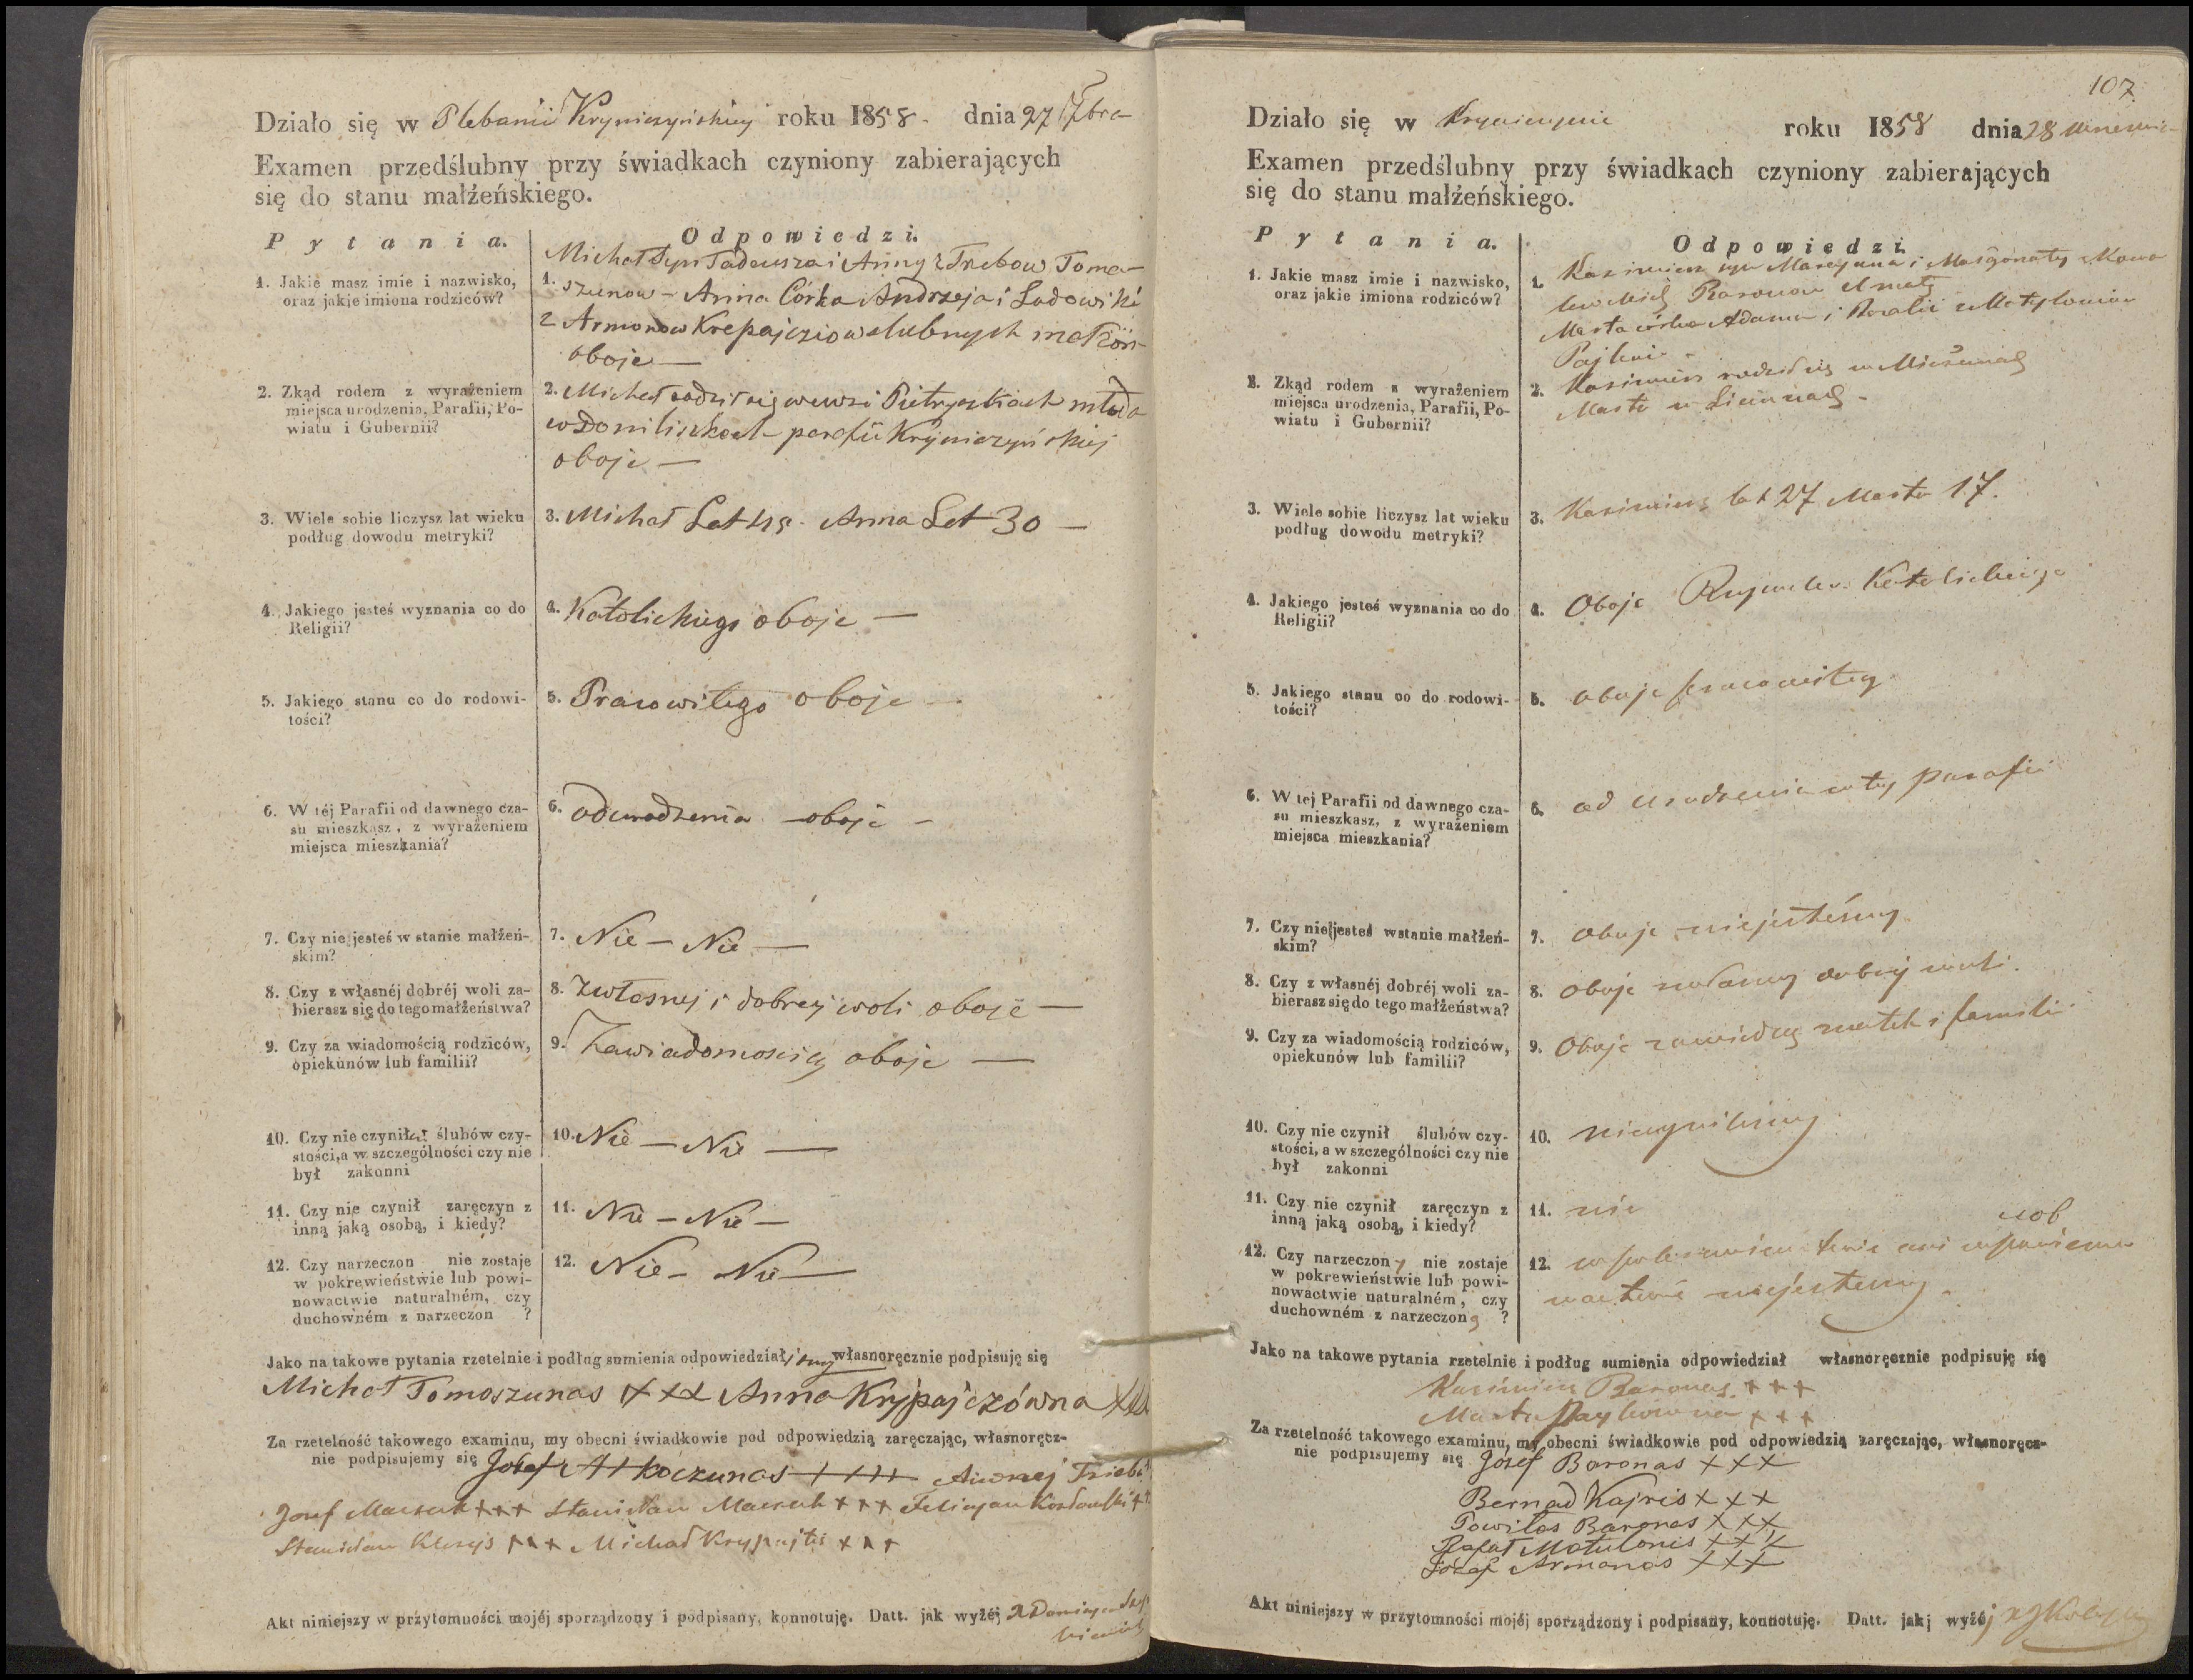 Działo się w Plebanii Kryniczyńskiey roku 1858. dnia 27 7bra
Examen przedślubny przy świadkach czyniony zabierających
się do stanu małżeńskiego.
Pytania. Odpowiedzi.
1. Jakie masz imie i nazwisko,
oraz jakie imiona rodziców?
Michał Syn Tadeusza i Anny z Trebow Toma-
1. szunow - Anna Córka Andrzeja i Ludowiki
z Armonow Krepajcziow slubnych małżon
oboje —
2. Zkąd rodem z wyrażeniem
miejsca urodzenia, Parafii, Po-
wiatu i Gubernii?
2. Michał rodził się wewsi Pietryszkach młoda
w Daniliszkach parafii Krýniczyńskiej
oboje —
3. Wiele sobie liczysz lat wieku
podług dowodu metryki?
3. Michał Lat 45 - Anna Lat 30 —
4. Jakiego jesteś wyznania co do
Religii?
4. Katolickiego oboje —
5. Jakiego stanu co do rodowi-
tości?
5. Prawowitego oboje —
6. W téj Parafii od dawnego cza-
su mieszkasz, z wyrażeniem
miejsca mieszkania?
6. od urodzenia oboje —
7. Czy nie jesteś w stanie małżeń-
skim?
7. Nie — Nie —
8. Czy z własnéj dobréj woli za-
bierasz się do tego małżeństwa?
8. Zwłasnej i dobrej woli oboje —
9. Czy za wiadomością rodziców,
opiekunów lub familii?
9. Zawiadomoscią oboje —
10. Czy nie czynił ślubów czy-
stości, a w szczególności czy nie
był zakonni
10. Nie — Nie —
11. Czy nie czynił zaręczyn z
inną jaką osobą, i kiedy?
11. Nie — Nie —
12. Czy narzeczon nie zostaje
w pokrewieństwie lub powi-
nowactwie naturalném, czy
duchowném z narzeczon ?
12. Nie — Nie —
Jako na takowe pytania rzetelnie i podług sumienia odpowiedział własnoręcznie podpisuję się
Michał Tomoszunas +++ Anna Krypajczówna +++
Za rzetelność takowego examinu, my obecni świadkowie pod odpowiedzią zaręczając, własnoręcz-
nie podpisujemy się Josef
Jozef +++ Stanisław +++ Felicyan Kozłowski ++
Stanisław +++ Michał Krypajtis +++
Akt niniejszy w przytomności mojéj sporządzony i podpisany, konnotuję. Datt. jak wyżéj
107.
Działo się w Krynicynie roku 1858 dnia 28
Examen przedślubny przy świadkach czyniony zabierających
się do stanu małżeńskiego.
Pytania. Odpowiedzi.
1. Jakie masz imie i nazwisko,
oraz jakie imiona rodziców?
1. Kazimierz syn Marcyana i Małgorzaty z Kowa
lewskich Baronow
Marta córka Adama i Rozalii z Matylonisow
2. Zkąd rodem z wyrażeniem
miejsca urodzenia, Parafii, Po-
wiatu i Gubernii?
2. Kazimierz rodził się w
Marta w
3. Wiele sobie liczysz lat wieku
podług dowodu metryki?
3. Kazimierz lat 27 Marta 17.
4. Jakiego jesteś wyznania co do
Religii?
4. Oboje Rzymsko Katolickiego
5. Jakiego stanu co do rodowi-
tości?
5. oboje prawowitego
6. W tej Parafii od dawnego cza-
su mieszkasz, z wyrażeniem
miejsca mieszkania?
6. od urodzenia w tej parafii
7. Czy nie jesteś wstanie małżeń-
skim?
7. oboje niejesteśmy
8. Czy z własnéj dobréj woli za-
bierasz się do tego małżeństwa?
8. oboje dobrej woli.
9. Czy za wiadomością rodziców,
opiekunów lub familii?
9. Oboje zawiedzą matek i familii
10. Czy nie czynił ślubów czy-
stości, a w szczególności czy nie
był zakonni
10. nieczyniliśmy
11. Czy nie czynił zaręczyn z
inną jaką osobą, i kiedy?
11. nie
12. Czy narzeczony nie zostaje
w pokrewieństwie lub powi-
nowactwie naturalném, czy
duchowném z narzeczoną ?
12. ani w powino
wactwie niejestesmy.
Jako na takowe pytania rzetelnie i podług sumienia odpowiedział własnoręcznie podpisuję się
Kazimierz Baronas +++
Marta +++
Za rzetelność takowego examinu, my obecni świadkowie pod odpowiedzią zaręczając, własnoręcz-
nie podpisujemy się Józef Baronas +++
Bernad Kajris +++
Powiłas Baronas +++
Rafał Matulonis +++
Józef Armanas +++
Akt niniejszy w przytomności mojéj sporządzony i podpisany, konnotuję. Datt. jak wyżéj